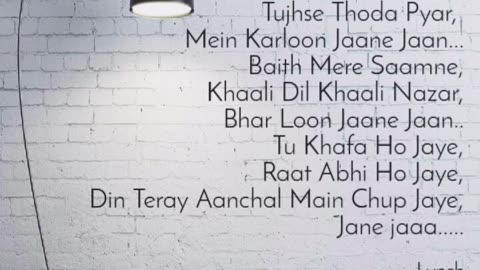 Tujhse Thoda Pyar,
Mein Karloon Jaane Jaan...
Baith Mere Saamne,
Khaali Dil Khaali Nazar,
Bhar Loon Jaane Jaan..
Tu Khafa Ho Jaye,
Raat Abhi Ho Jaye,
Din Teray Aanchal Main Chup Jaye,
Jane jaaa.....